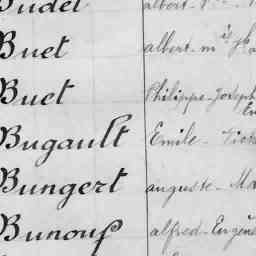 Budet albert
Buet albert-m
Buet Philippe-Joseph
Bugault Emile-
Bungert auguste-
Bunouf alfred-Eugène